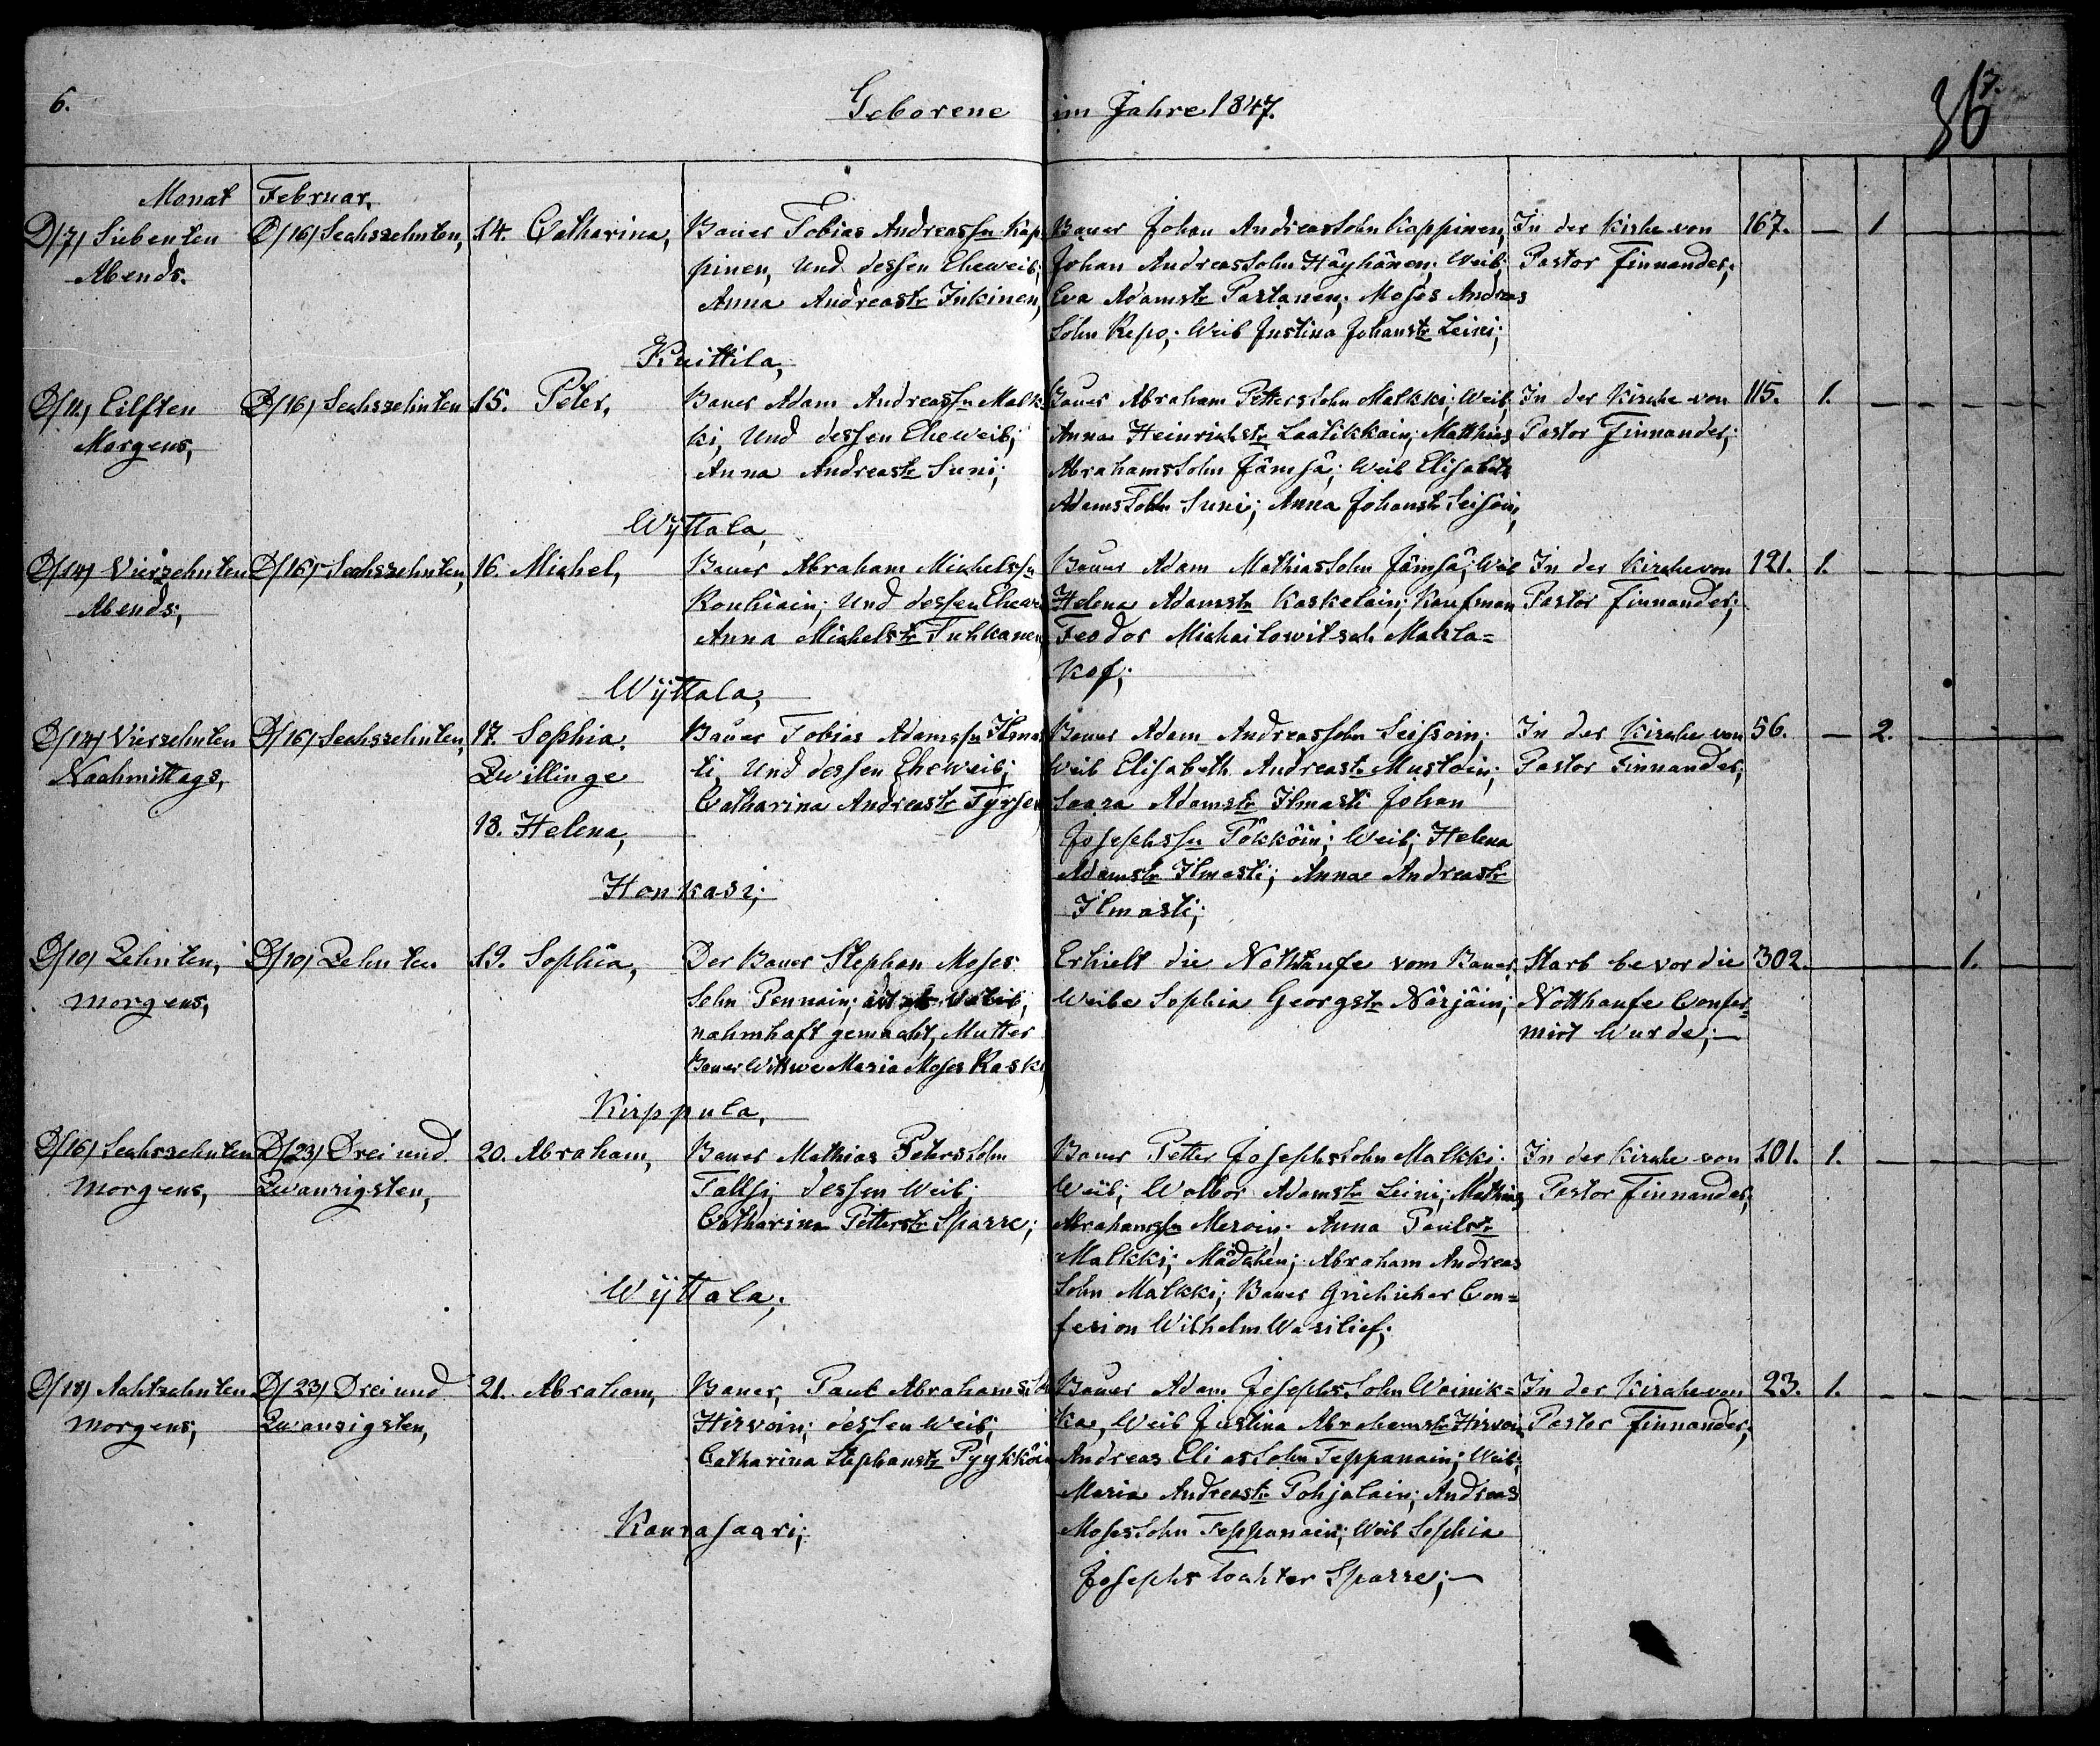 6.
Geborene im Jahre 1847.
7.
36
Monat Februar,
D/7/ Siebenten D/16/ Sechszehnten, 14. Catharina, Bauer Tobias Andreassn Kap Bauer Johan AndreasSohn Kappinen, In der Kirche von 167. — 1
Abends. pinen, Und dessen Eheweib; Johan AndreasSohn Häyhänen; Weib; Pastor Finnander;
Anna Andreastr Inkinen, Eva Adamstr Partanen; Moses Andreas
Sohn Repo; Weib Justina Johanstr Leini;
Kuittila,
D/11/ Eilften D/16/ Sechszehnten 15. Peter, Bauer Adam Andreassn Malk Bauer Abraham PettersSohn Malkki; Weib; In der Kirche von 115. 1.
Morgens, ki, Und dessen Eheweib; Anna Heinrichstr Laatikkain; Matthias Pastor Finnander;
Anna Andreastr Suni; AbrahamsSohn Jämsä; Weib Elisabeth
Adams Suni; Anna Johanstr Seisoin,
Wÿttala,
D/14/ Vierzehnten D/16/ Sechszehnten, 16. Michel, Bauer Abraham Michelssn Bauer Adam MathiasSohn Jämsä; Weib In der Kirche von 121. 1.
Abends; Kouhiain; Und dessen Ehewe Helena Adamstr Kaskelain; Kaufman Pastor Finnander;
Anna Michelstr Tuhkanen, Feodor Michailowitsch Mahla=
kof;
Wÿttala,
D/14/ Vierzehnten D/16/ Sechszehnten, 17. Sophia. Bauer Tobias Adamssn Ilmas Bauer Adam AndreasSohn Seissoin; In der Kirche von 56. — 2.
Nachmittags, Zwillinge ti, Und dessen Eheweib; Weib Elisabeth Andreastr Mustoin; Pastor Finnander;
Catharina Andreastr Tyrse Saara Adamstr Ilmasti Johan
18. Helena, Josephssn Pökköin; Weib; Helena
Adamstr Ilmasti; Anna Andreastr
Honkasi; Ilmasti;
D/10/ Zehnten, D/10/ Zehnten 19. Sophia, Der Bauer Stephan Moses Erhielt die Nothtaufe vom Bauer, Starb bevor die 302. 1.
Morgens, Sohn Pennain; nahmhaft gemacht, Mutter Weibe Sophia Georgstr Närjäin; Notthaufe Confer=
mirt Wurde; —
Bauer Wittwe Maria Moses Kaski
Kirppula,
D/16/ Sechszehnten D/23/ Drei und 20. Abraham, Bauer Mathias PetersSohn Bauer Petter JosephsSohn Malkki; In der Kirche von 101. 1.
Morgens, Zwanzigsten, Talsi, dessen Weib; Weib; Walbor Adamstr Leini; Mathias Pastor Finnander,
Catharina Petterstr Sparre; Abrahamssn Meroin; Anna Paulstr
Malkki; Mädchen; Abraham Andreas
Wÿttala; Sohn Malkki; Bauer Grichicher Con=
fesion Wilhelm Wasilief;
D/18/ Achtzehnten D/23/ Drei und 21. Abraham, Bauer, Paul Abrahams Bauer Adam JosephsSohn Wainik= In der Kirche von 23. 1.
Morgens, Zwanzigsten, Hirvoin; dessen Weib; ka, Weib Justina Abrahamstr Hirvoin Pastor Finnander,
Catharina Stephanstr Pyykköin Andreas EliasSohn Teppanain; Weib;
Maria Andreastr Pohjalain; Andreas
Kaurasaari; MosesSohn Teppanain; Weib Sophia
Josephs Tochter Sparre; —